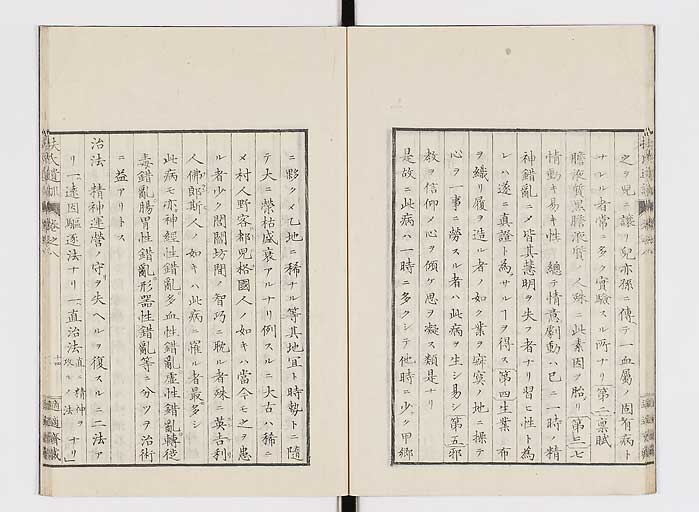 之ヲ兒ニ讓リ兒亦孫ニ傳テ一血屬ノ固有病ト
ナレル者常ニ多ク實驗スル所ナリ第二稟賦
膽液質黑膽液質ノ人殊ニ此素因ヲ胎リ第三七
情動キ易キ性總テ情意劇動ハ已ニ一時ノ精
神錯亂ニメ皆其慧明ヲ失フ者ナリ習ヒ性ト為
レハ遂ニ真證ト為サルヿヲ得ス第四生業布
ヲ織リ履ヲ造ル者ノ如ク業ヲ寂寞ノ地ニ操テ
心ヲ一事ニ勞スル者ハ此病ヲ生シ易シ第五邪
教ヲ信仰メ心ヲ傾ケ思ヲ凝ス類是ナリ
是故ニ此病ハ一時ニ多クシテ他時ニ少ク甲鄉
ニ夥クメ乙地ニ稀ナル等其地宜ト時勢トニ隨
テ大ニ榮枯盛衰アルナリ例スルニ大古ハ稀ニ
メ村人野客都兒格國人ノ如キハ當今モ之ヲ患
ル者少ク閭閻坊間ノ智巧ニ耽ル者殊ニ英吉利
人佛郎斯人ノ如キハ此病ニ罹ル者最多シ
此病モ亦神經性錯亂多血性錯亂虛性錯亂轉徙
毒錯亂腸胃性錯亂形器性錯亂等ニ分ツヲ治術
ニ益アリトス
治法 精神運營ノ守ヲ失ヘルヲ復スルニ二法ア
リ一遠因驅逐法ナリ一直治法直ニ精神ヲ攻ルノ法ナリ
扶氏遺訓 卷之八 十四 適適齋藏